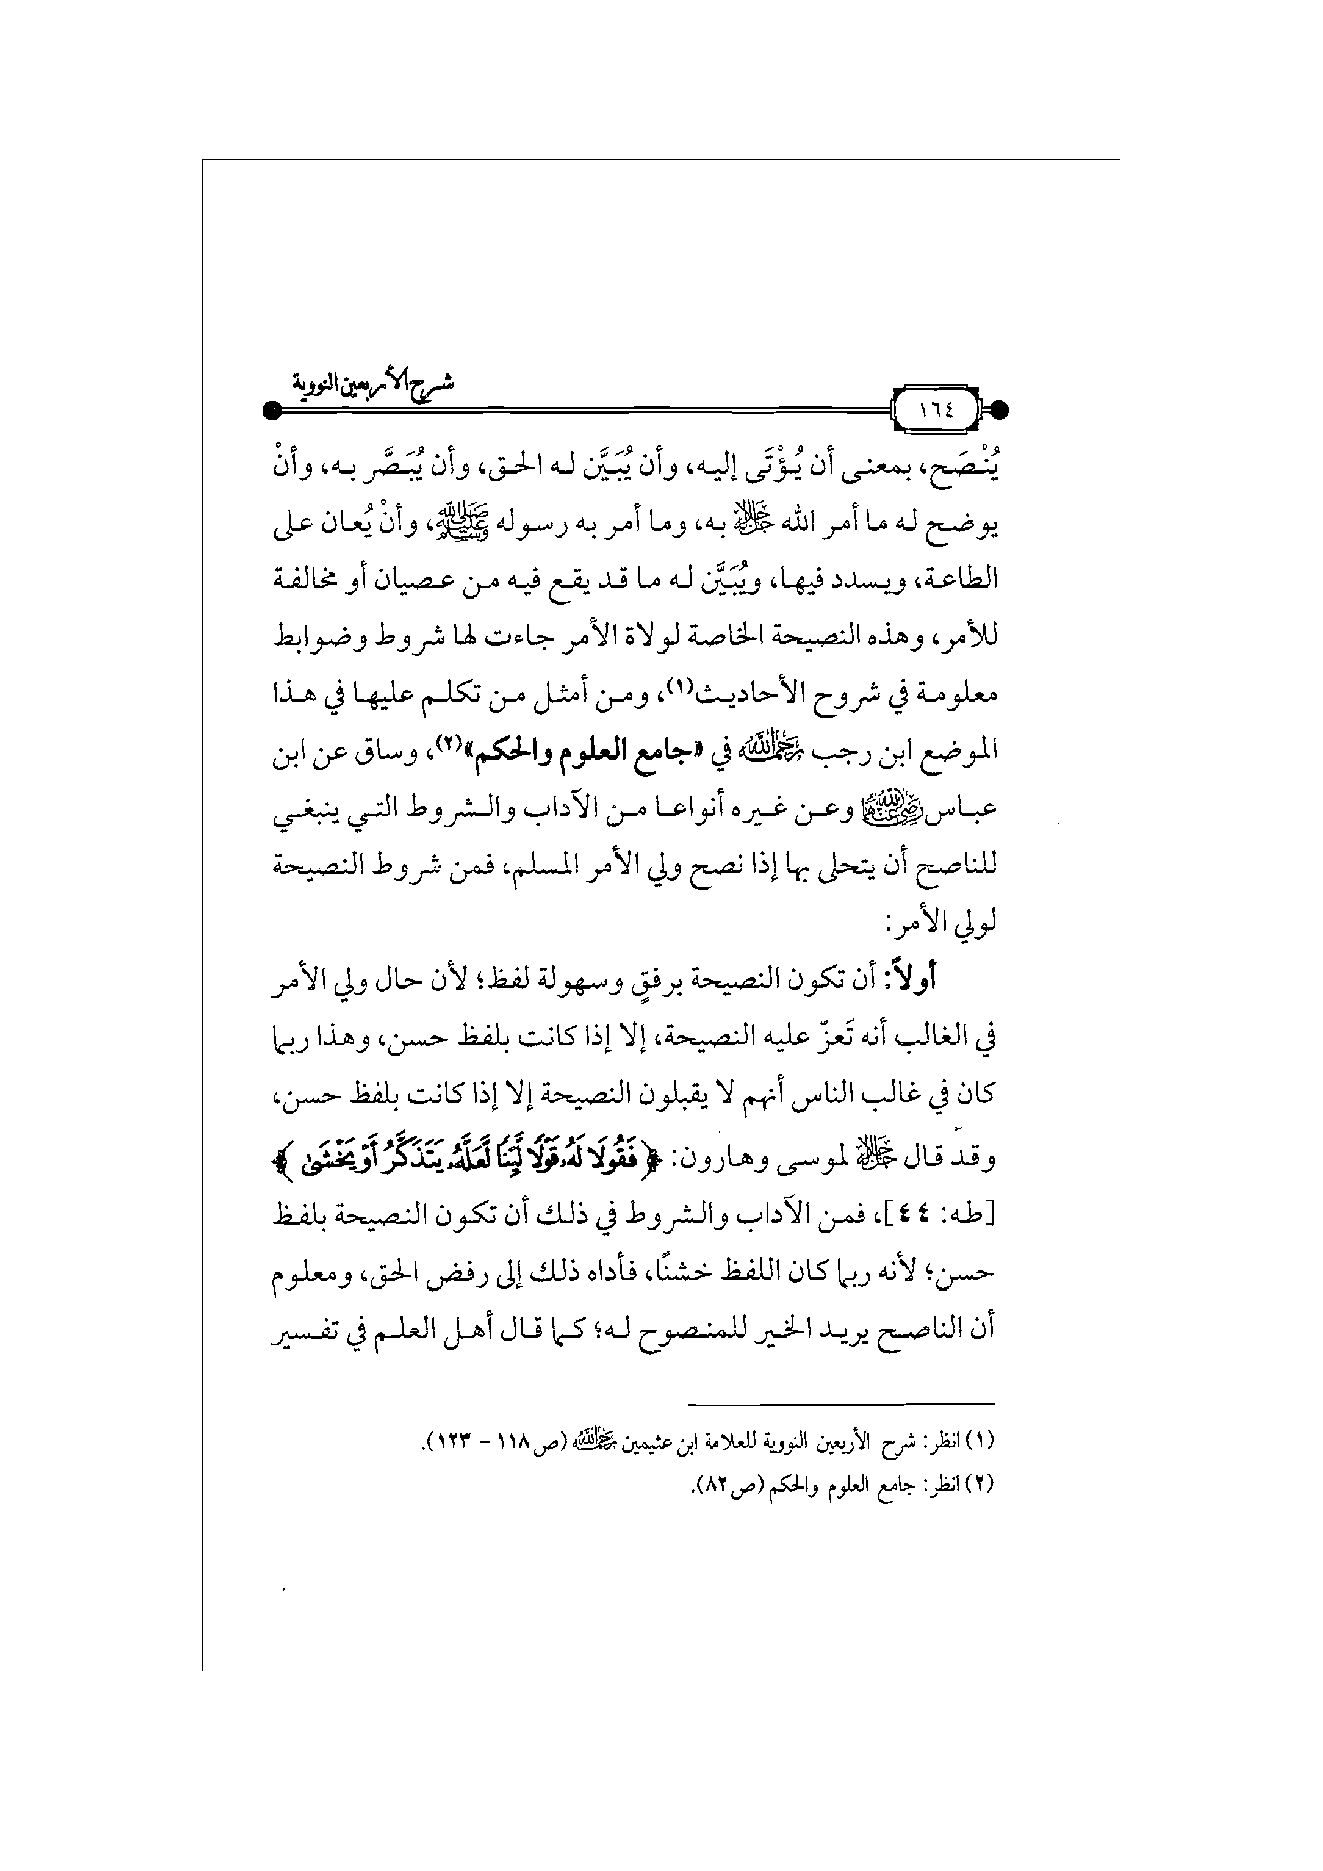 شرح الأربعين النووية
١٦٤
يُنْصَح، بمعنى أن يُؤْتَى إليه، وأن يُبَيَّن له الحق، وأن يُبَصَّر به، وأنْ
يوضح له ما أمر الله ﷻ به، وما أمر به رسوله ﷺ، وأنْ يُعان على
الطاعة، ويسدد فيها، ويُبَيَّن له ما قد يقع فيه من عصيان أو مخالفة
للأمر، وهذه النصيحة الخاصة لولاة الأمر جاءت لها شروط وضوابط
معلومة في شروح الأحاديث(١)، ومن أمثل من تكلم عليها في هذا
الموضع ابن رجب رحمه الله في «جامع العلوم والحكم»(٢)، وساق عن ابن
عباس رضي الله عنهما وعن غيره أنواعا من الآداب والشروط التي ينبغي
للناصح أن يتحلى بها إذا نصح ولي الأمر المسلم، فمن شروط النصيحة
لولي الأمر:
أولاً: أن تكون النصيحة برفقٍ وسهولة لفظ؛ لأن حال ولي الأمر
في الغالب أنه تَعزّ عليه النصيحة، إلا إذا كانت بلفظ حسن، وهذا ربما
كان في غالب الناس أنهم لا يقبلون النصيحة إلا إذا كانت بلفظ حسن،
وقد قال ﷻ لموسى وهارون: ﴿فَقُولَا لَهُۥ قَوْلًا لَّيِّنًا لَّعَلَّهُۥ يَتَذَكَّرُ أَوْ يَخْشَىٰ﴾
[طه: ٤٤]، فمن الآداب والشروط في ذلك أن تكون النصيحة بلفظ
حسن؛ لأنه ربما كان اللفظ خشنًا، فأداه ذلك إلى رفض الحق، ومعلوم
أن الناصح يريد الخير للمنصوح له؛ كما قال أهل العلم في تفسير
(١) انظر: شرح الأربعين النووية للعلامة ابن عثيمين رحمه الله (ص١١٨ - ١٢٣).
(٢) انظر: جامع العلوم والحكم (ص٨٢).